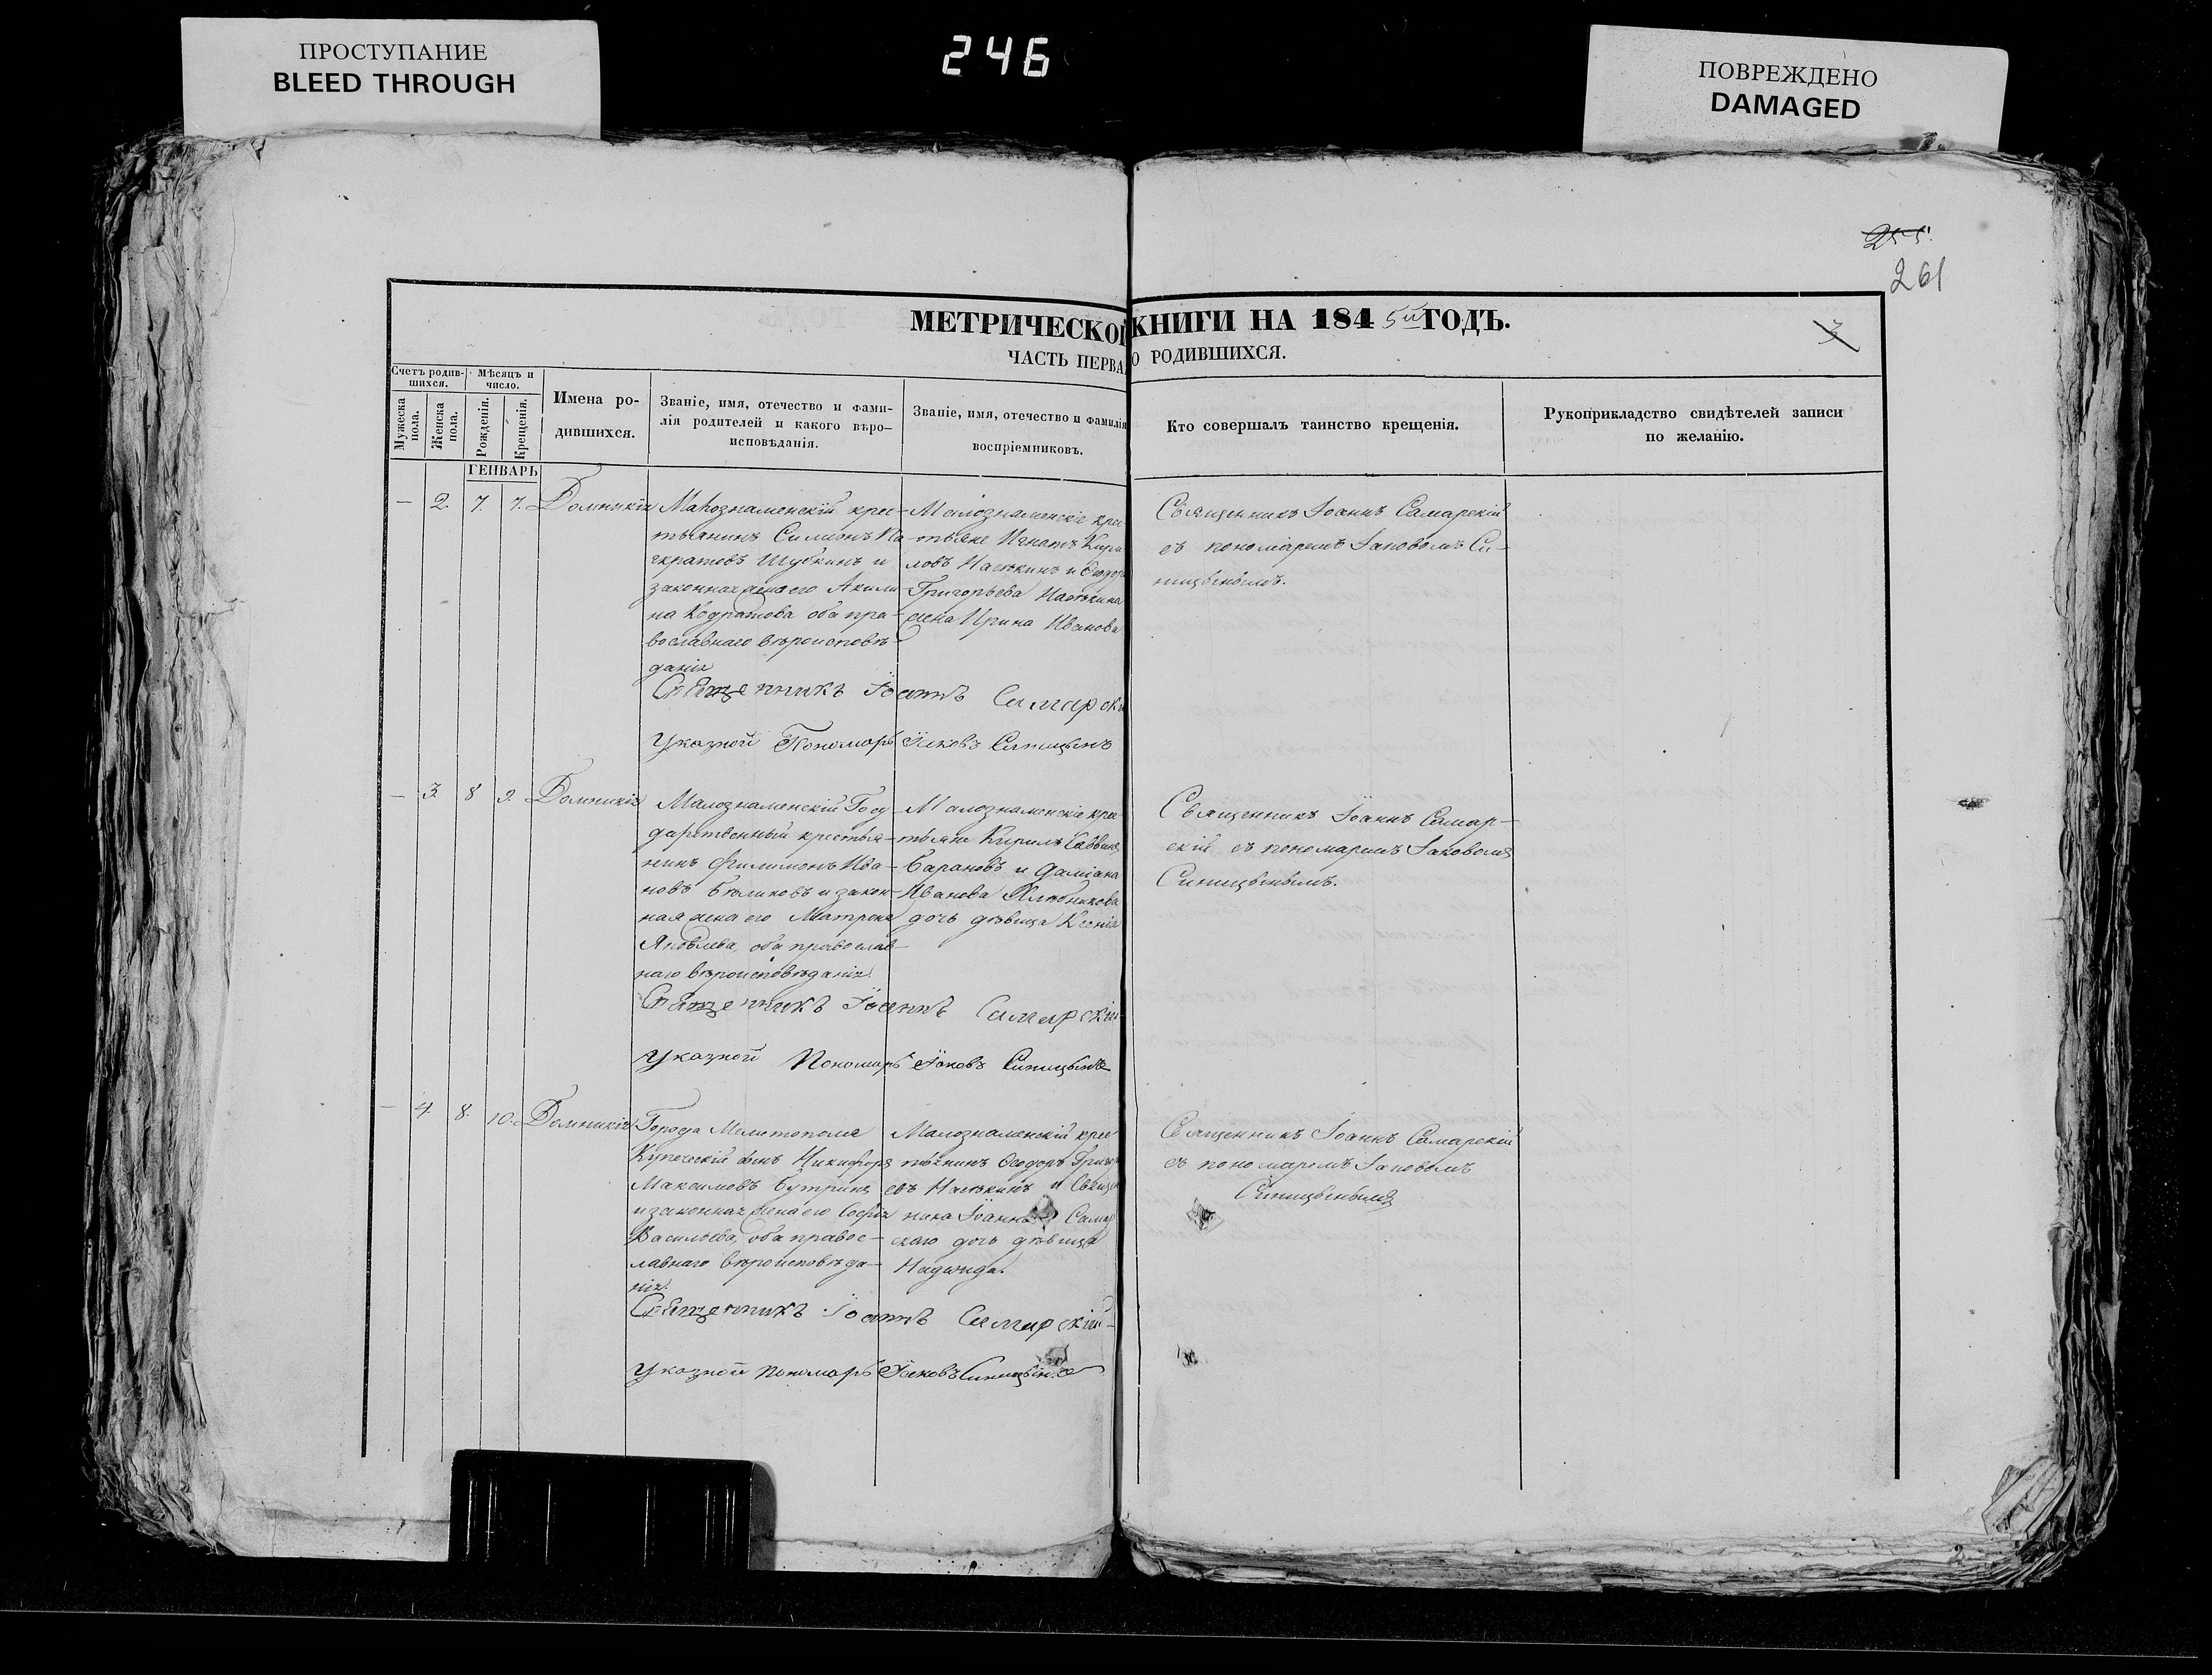 ПРОСТУПАНИЕ
BLEED THROUGH
246
ПОВРЕЖДЕНО
DAMAGED
255.
261
МЕТРИЧЕСКОЙ КНИГИ НА 1845й ГОДЪ.
3
ЧАСТЬ ПЕРВА О РОДИВШИХСЯ.
Счетъ родив-
шихся.
Мужеска
пола.
Женска
пола.
Мѣсяцъ и
число.
Рожденія.
Крещенія.
Имена ро-
дившихся.
Званіе, имя, отечество и фами-
лія родителей и какого вѣро-
исповѣданія.
Званіе, имя, отечество и фамилія
воспріемниковъ.
Кто совершалъ таинство крещенія.
Рукоприкладство свидѣтелей записи
по желанію.
ГЕНВАРЬ
— 2. 7. 7. Домникія
Малознаменскій крес-
тьянинъ Симеонъ Па-
нкратовъ Шубкинъ и
законная жена его Акили-
на Кодратова оба пра-
вославнаго вѣроисповѣ-
данія
Малознаменскіе крес
тьяне Игнатъ Кири
ловъ Насѣкинъ и Ѳеодор
Григорьева Насѣкина
жена Ирина Иванова
Священникъ Іоаннъ Самарскій
съ пономаремъ Іаковомъ Си-
ницынымъ.
Священникъ Іоаннъ Самарскі
Указной Пономарь Іаковъ Синицынъ
— 3. 8 9. Домникія
Малознаменскій Госу
дарственный крестья-
нинъ Филимонъ Ива-
новъ Бѣликовъ и закон-
ная жена его Матрона
Яковлева, оба православ-
наго вѣроисповѣданія.
Малознаменскіе крес
тьяне Кирилъ Саввинъ
Барановъ и Даміана
Иванова
дочь дѣвица Ксенія
Священникъ Іоаннъ Самар-
скій съ пономаремъ Іаковомъ
Синицынымъ.
Священникъ Іоаннъ Самарскій
Указной Пономарь Іаковъ Синицынъ
— 4. 8. 10. Домникія
Города Мелитополя
Купеческій сынъ Никифоръ
Максимовъ Бутринъ
и законная жена его Софія
Васильева, оба правос-
лавнаго вѣроисповѣда-
нія.
Малознаменскій крес
тьянинъ Ѳеодоръ Григор
евъ Насѣкинъ и Священ
ника Іоанна Самар
скаго дочь дѣвица
Надежда.
Священникъ Іоаннъ Самарскій
съ пономаремъ Іаковомъ
Синицынымъ
Священникъ Іоаннъ Самарскій
Указной Пономарь Іаковъ Синицынъ